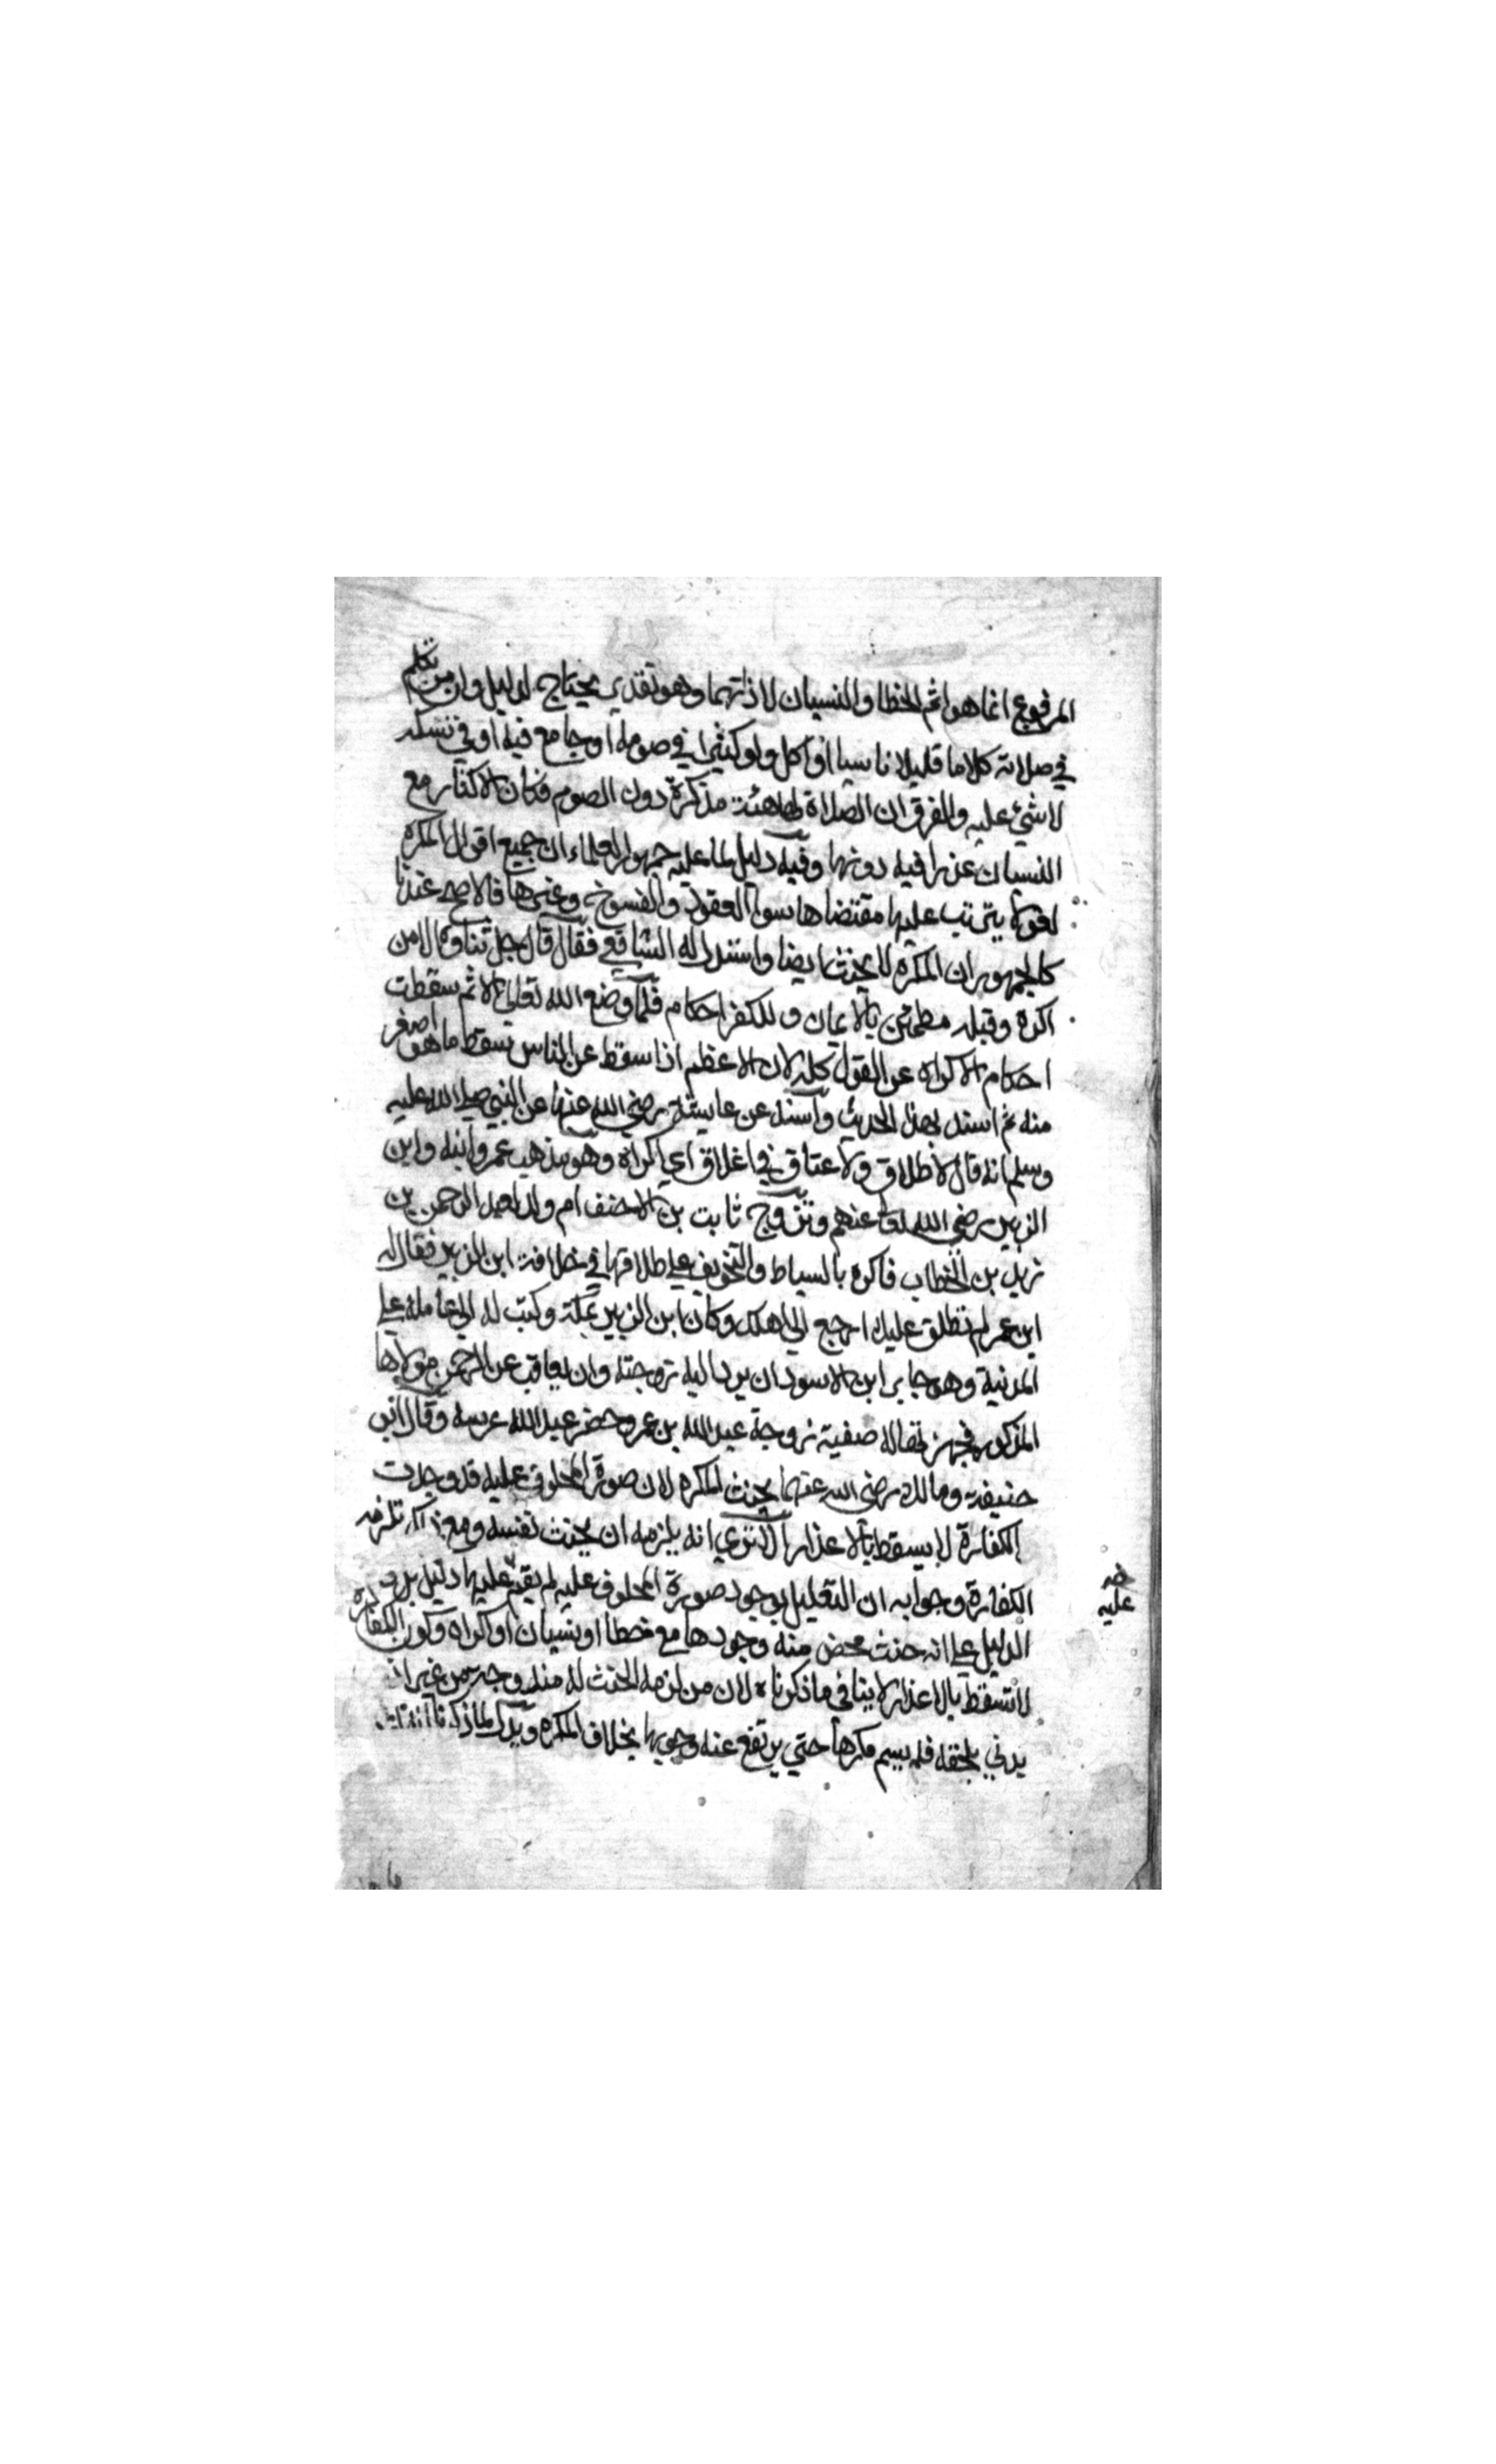 المرفوع انما هو اثم الخطا والنسيان لا ذاتهما وهو تقدير يحتاج لدليل وان من تكلم
في صلاته كلاما قليلا ناسيا او اكل ولو كثيرا في صومه او جامع فيه او في نسكه
لا شئ عليه والفرق ان الصلاة لها هيئة مذكرة دون الصوم فكان الاكثار مع
النسيان عذرا فيه دونها وفيه دليل لما عليه جمهور العلماء ان جميع اقوال المكره
لغو لا يترتب عليها مقتضاها سوا العقود والفسوخ وغيرها فالاصح عندنا
كالجمهور ان المكره لا يحنث ايضا واستدل له الشافعي فقال قال جل ثناؤه الا من
اكره وقلبه مطمئن بالايمان وللكفر احكام فلما وضع الله تعالى الاثم سقطت
احكام الاكراه عن القول كله لان الاعظم اذا سقط عن الناس سقط ما هو اصغر
منه ثم اسند لهذا الحديث واسند عن عايشة رضي الله عنها عن النبي صلى الله عليه
وسلم انه قال لا طلاق ولا عتاق في اغلاق اي اكراه وهو مذهب عمر وابنه وابن
الزبير رضي الله تعالى عنهم وتزوج ثابت بن الاحنف ام ولد لعبد الرحمن بن
زيد بن الخطاب فاكره بالسياط والتخويف على طلاقها في خلافة ابن الزبير فقال له
ابن عمر لم تطلق عليك ارجع الى اهلك وكان ابن الزبير بمكة وكتب له الى عامله على
المدنية وهو جابر ابن الاسود ان يرد اليه زوجته وان يعاقب عبد الرحمن مولاها
المذكور فجهزتها له صفية زوجة عبد الله بن عمر وحضر عبد الله عرسه وقال ابو
حنيفة ومالك رضي الله عنهما يحنث المكره لان صورة المحلوف عليه قد وجدت
الكفارة لا يسقط بالاعذار الا ترى انه يلزمه ان يحنث نفسه ومع ذالك تلزمه
الكفارة وجوابه ان التعليل بوجود صورة المحلوف عليه لم يقم عليها دليل بل
الدليل على انه حنث محض منه وجودها مع خطا او نسيان او اكراه وكون الكفارة
لا تسقط بالاعذار لا ينافي ما ذكرناه لان من لزمه الحنث له مندوحة من غير
بلحقه فلم يسم مكرها حتى يرتفع عنه وجوبها بخلاف المكره ويدل لما ذكرنا
عليه